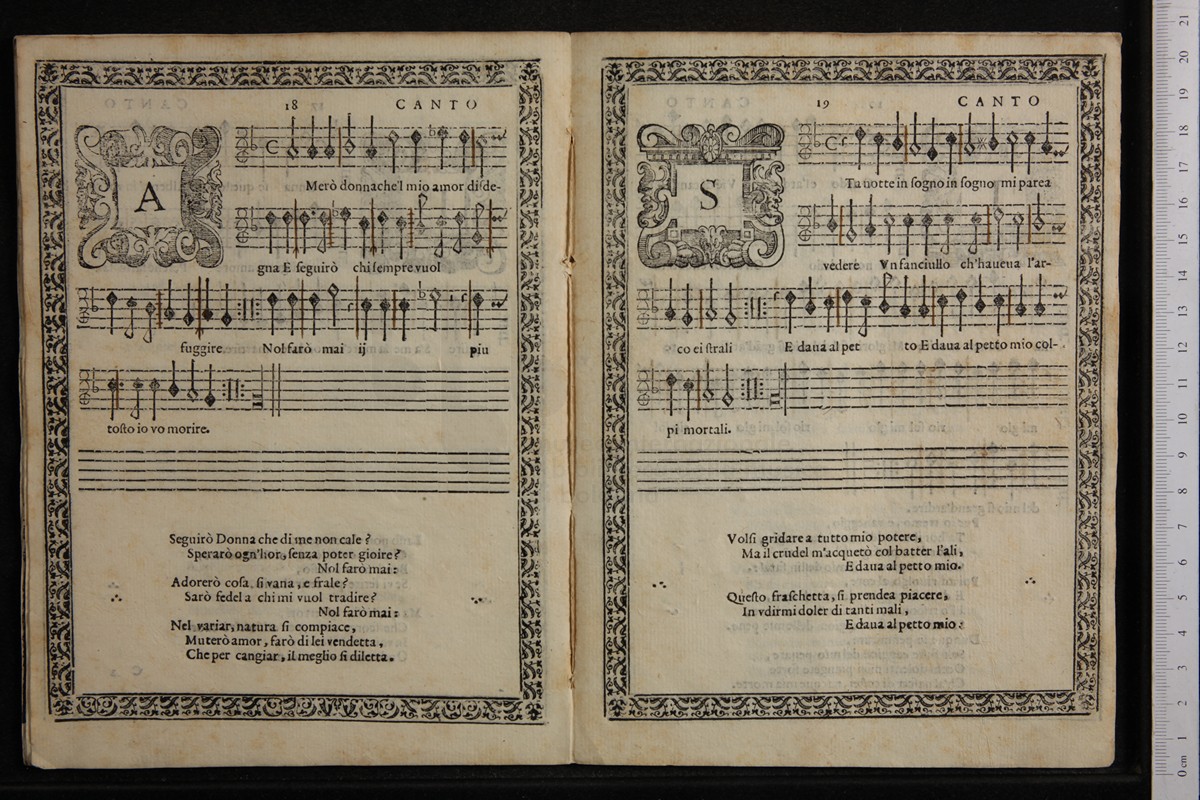 18 CANTO
A
Merò donna che'l mio amor disde-
gna E seguirò chi sempre vuol
fuggire. Nol farò mai ij piu
tosto io vo morire.
Seguirò Donna che di me non cale?
Sperarò ogn'hor, senza poter gioire?
Nol farò mai:
Adorerò cosa, si vana, e frale?
Sarò fedel a chi mi vuol tradire?
Nol farò mai:
Nel variar, natura si compiace,
Muterò amor, farò di lei vendetta,
Che per cangiar, il meglio si diletta.
19 CANTO
S
Ta notte in sogno in sogno mi parea
vedere Vn fanciullo ch'haueua l'ar-
co ei strali E daua al pet to E daua al petto mio col-
pi mortali.
Volsi gridare a tutto mio potere,
Ma il crudel m'acquetò col batter l'ali,
E daua al petto mio.
Questo fraschetta, si prendea piacere,
In vdirmi doler di tanti mali,
E daua al petto mio:
21
20
19
18
17
16
15
14
13
12
11
10
9
8
7
6
5
4
3
2
1
0 cm